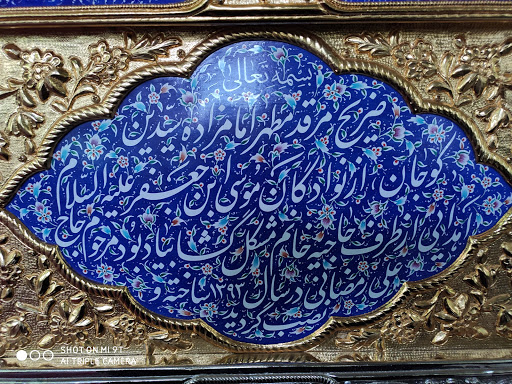 بسمه تعالی
ضریح مرقد مطهر امامزاده سیدین
کوجان از نوادگان موسی ابن جعفر علیه السلام
اهدایی از طرف حاجیه خانم مشکل گشا مرحوم حاج
علی رمضانی در سال ۱۳۹۳ ساخته
نصب گردید
SHOT ON MI 9T
AI TRIPLE CAMERA